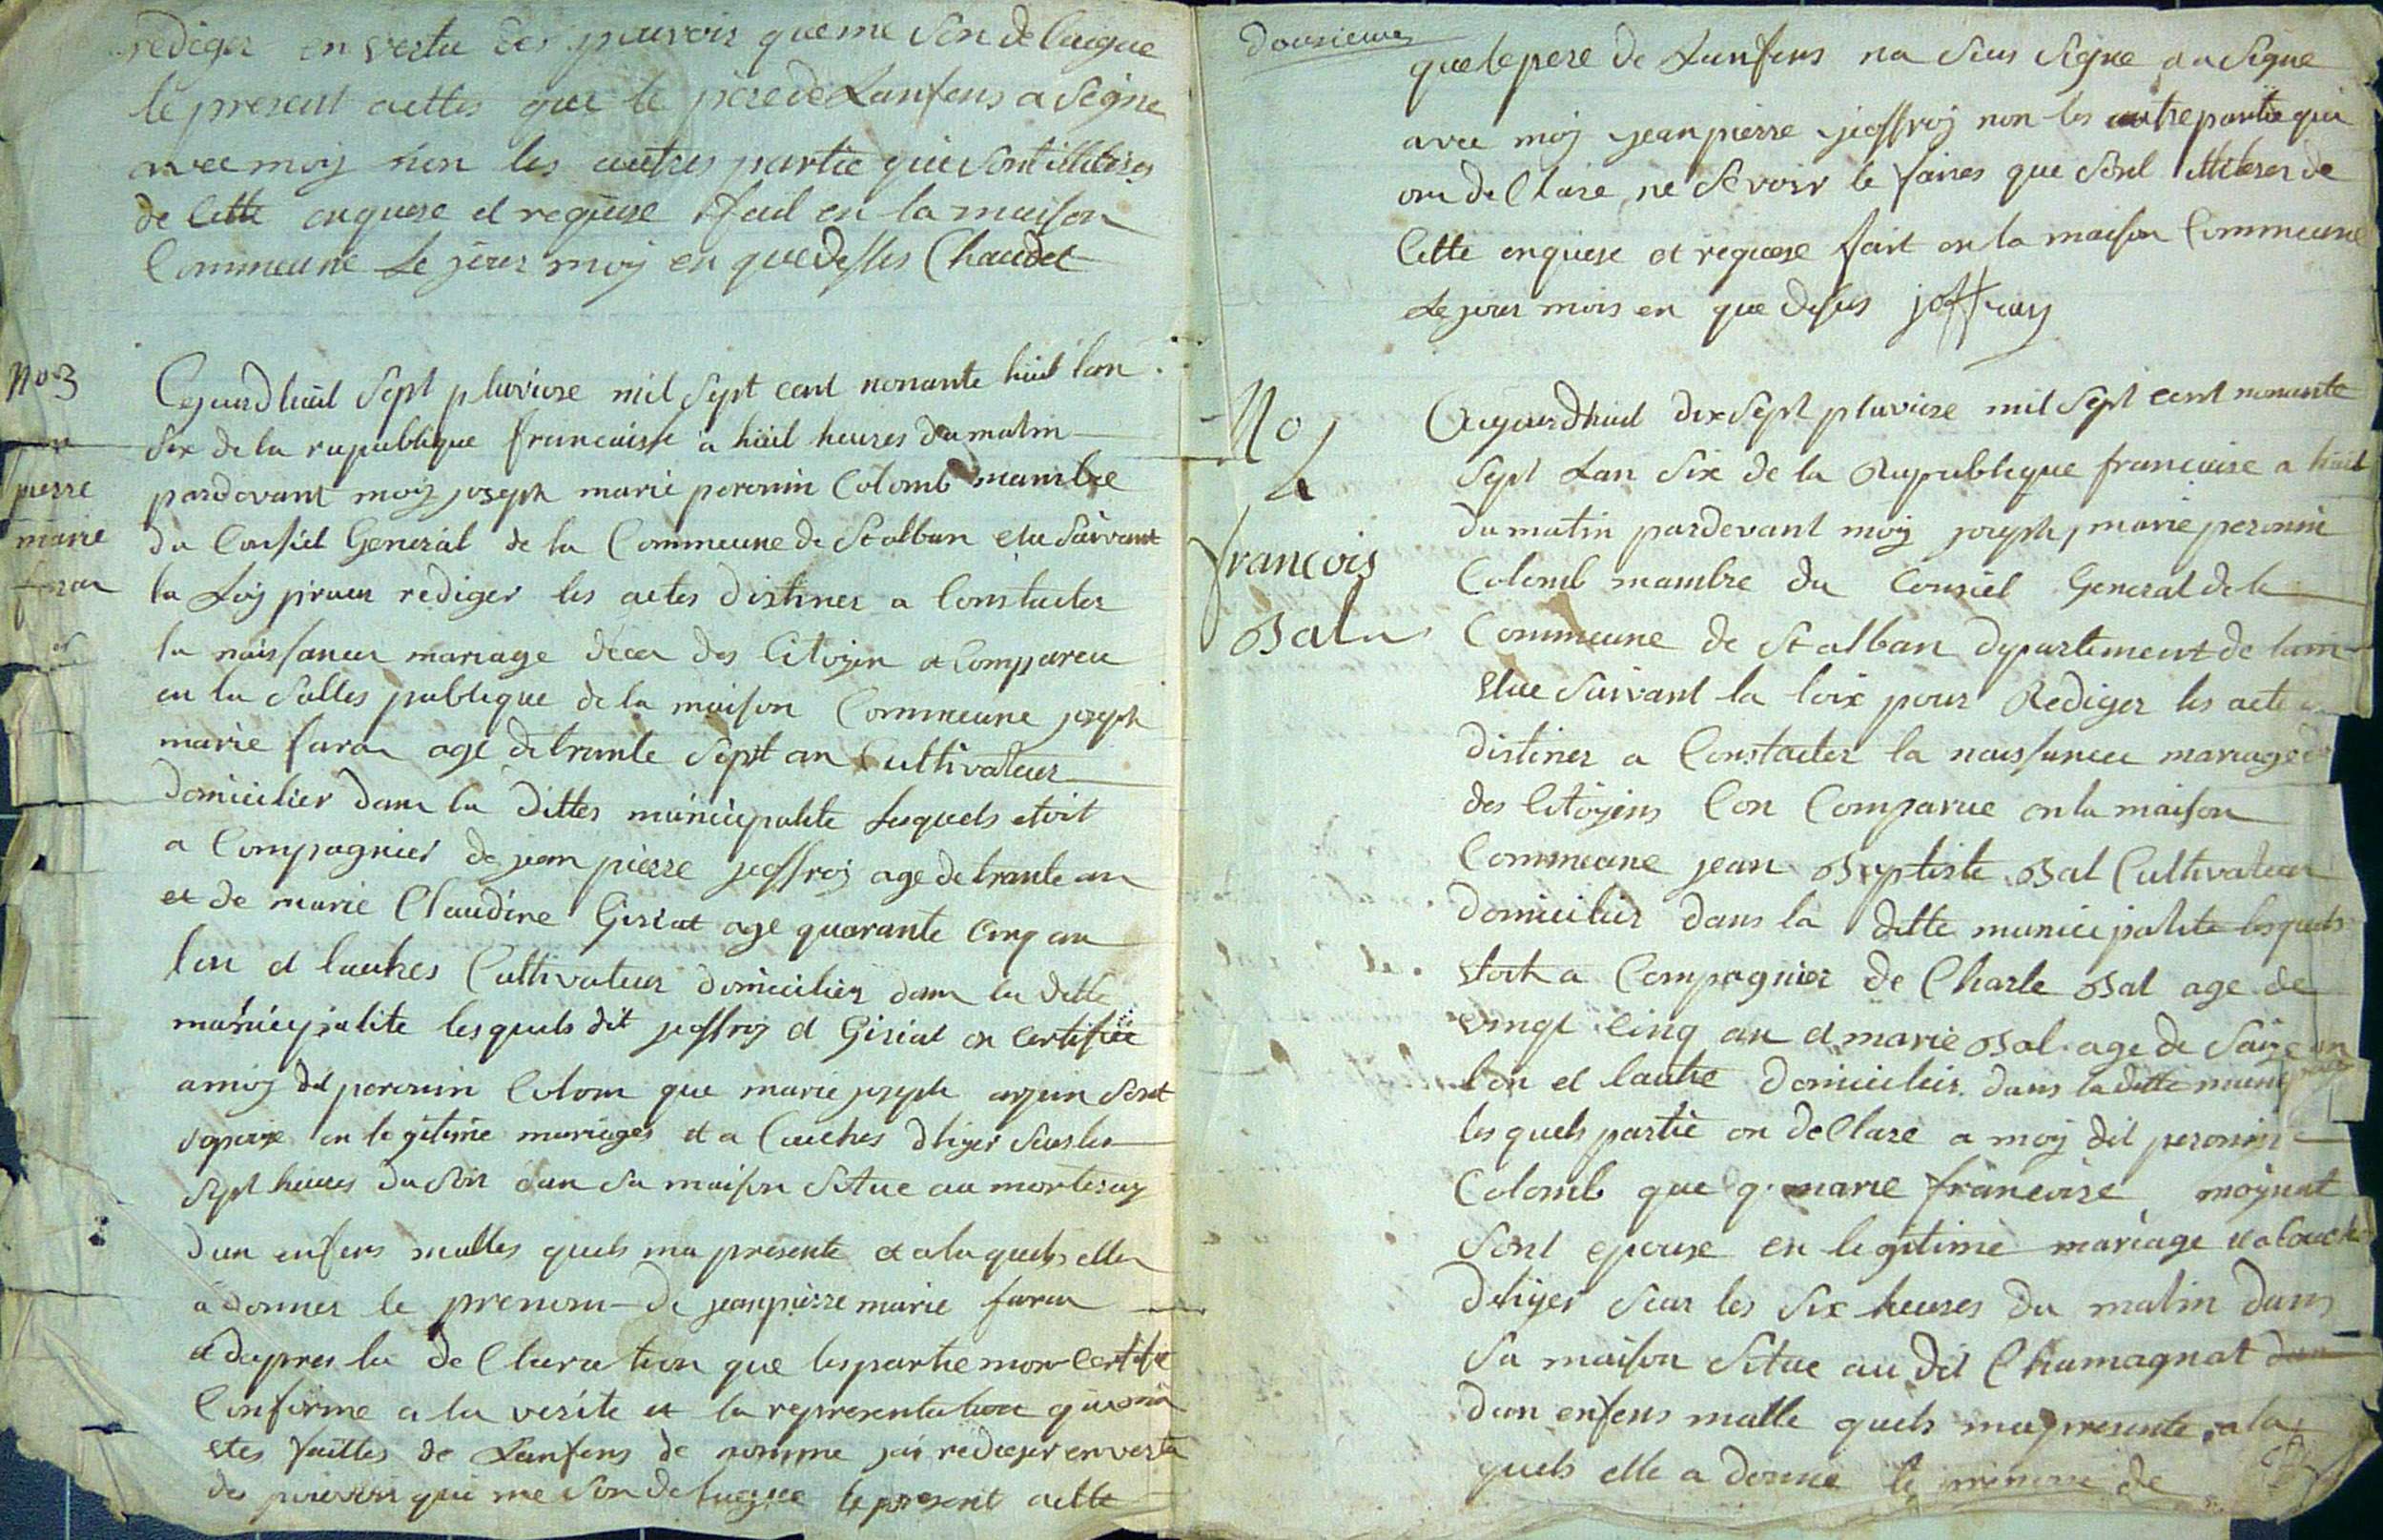 rediger en vertu des pouvoir que me son delaigue
le present acttes que le pere de Lanfens a signe
avec moy non les autres partie que sont illiteres
de cette enquese et requise fait en la maison
Commeune Le jour moy en que desses Chaudet
No 3
pierre
marie
Cejourdhuit sept pluviose mil sept cent nonante huit lan
six de la republique francaisse a huit heures du matin
pardevant moy joseph marie peronin Colomb mambre
du Consiel General de la Commeune de St alban elu suivant
la Loy pour rediger les actes distines a Constacter
la naissances mariage déces des Citoyen a Compareu
en la salles publique de la maison Commeune joseph
marie faron age de trante sept an Cultivateur
domicilier dans la dittes municipalite lesquels etoit
a Compagnier de jean pierre jeoffroy age de trante an
et de marie Claudine Giriat age quarante cinq an
lun et lautres Cultivateur domicilier dans la ditte
municipalite lesquels dit jeoffroy et Giriat on certifiée
a moy dit peronin Colom que marie joseph sont
epouxe en legitime mariages et a Couches dhyer sur les
sept heures du soir dan sa maison situe au morteray
dun enfens malles quels ma presente et a laquels elle
a donner le prenom de jean pierre marie faron
et dapres la declaration que les partie mon certifie
Conforme a la verite et la representation qui ma
etes faittes de Lanfens de nomme jai rediger en vertu
des pouvoir que me son delaigue le present actte
dousieume
que le pere de Lanfens na sus signe a signe
avec moy jean pierre jeoffroy non les autre partie qui
on declare ne sevoir le faires que sont illiteres de
Cette enquise et requese fait en la maison Commeune
Le jour mois en que desus joffray
No 4
francois
Bal
Aujourdhuit dix sept pluviose mil sept cent nonante
sept Lan six de la Republique francaise a huit
du matin pardevant moy joseph marie peronin
Colomb mambre du Consiel General de la
Commeune de St alban departement de lain
elue suivant la loix pour Rediger les acte
distines a Constacter la naissances mariage
des Citoyens Con Comparue en la maison
Commeune jean Baptiste Bal Cultivateur
domicilier dans la ditte municipalite lesquels
etoit a Compagnier de Charle Bal age de
vingt cinq an et marie Bal age de saize an
lun et lautre domicilier dans la ditte municipalite
lesquels partie on declare a moy dit peronin
Colomb que marie francoise moynat
sont epouxe en legitime mariage et a Couche
dhyer sur les six heures du matin dans
sa maison situe au dit Chamagnat
dun enfens malle quels ma presente a la
quels elle a donne le de